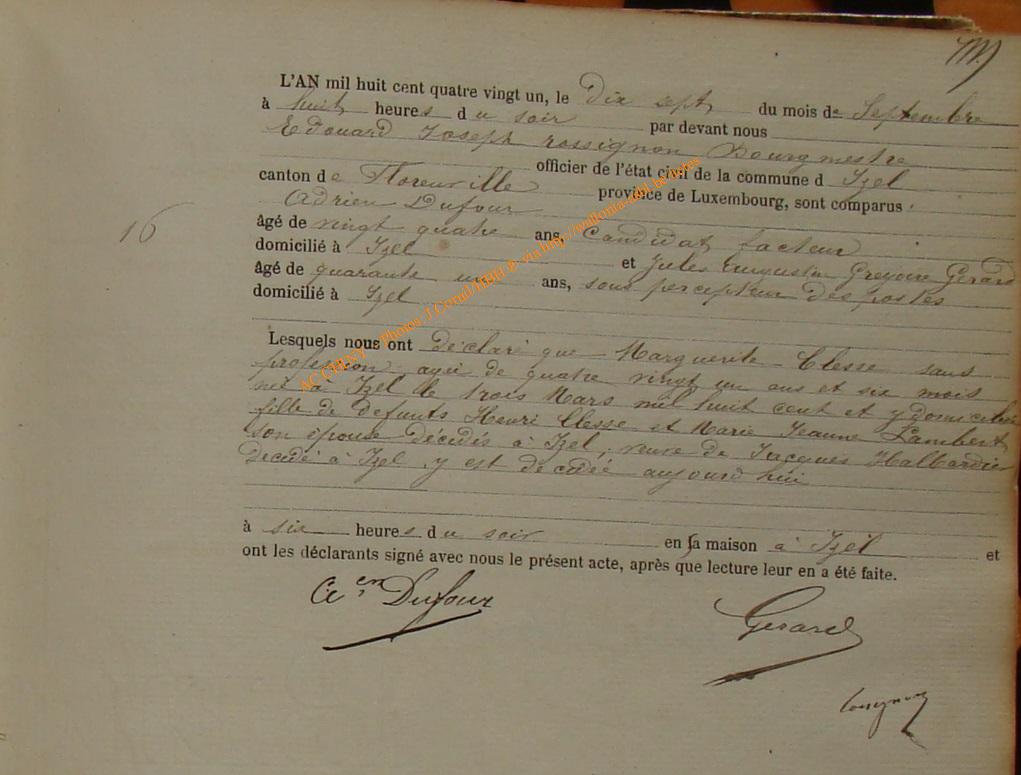 L'AN mil huit cent quatre vingt un, le Dix sept du mois de Septembre
à huit heures du soir par devant nous
Edouard Joseph rossignon Bourgmestre
officier de l'état civil de la commune d Izel
canton de Florenville province de Luxembourg, sont comparus :
Adrien Dufour
âgé de vingt quatre ans, Candidat facteur
domicilié à Izel et Jules Augustin Gregoire Gerard
âgé de quarante un ans, sous percepteur des postes
domicilié à Izel
16
Lesquels nous ont déclaré que Marguerite Clesse sans
profession agée de quatre vingt un ans et six mois
née à Izel le trois Mars mil huit cent et y domiciliée
fille de defunts Henri Clesse et Marie Jeanne Lambert
son épouse décédés à Izel, veuve de Jacques Halbardier
Decédé à Izel y est décédée aujourd'hui
à six heures du soir en sa maison à Izel et
ont les déclarants signé avec nous le présent acte, après que lecture leur en a été faite.
Aen Dufour
Gerard
rossignon
ACCHINY - Photos J.Cornil/HBH © via http://wallonia-asbl.be/votes